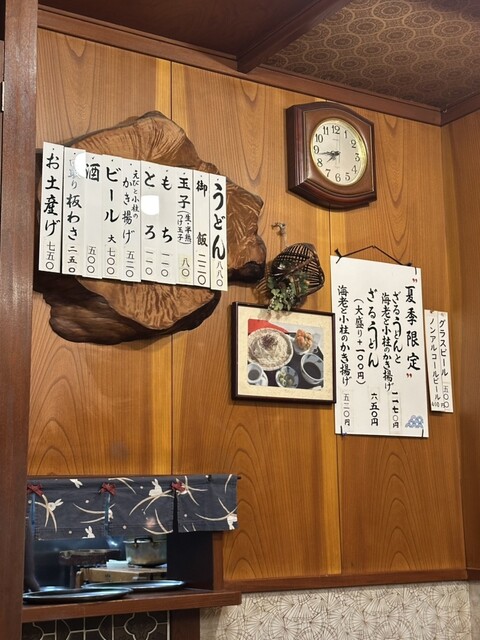 うどん 八八〇
御飯 二二〇
玉子(生・半熟 つけ玉子) 八〇
もち 一一〇
とろろ 一一〇
えびと小柱の かき揚げ 五二〇
ビール 大 七〇〇
酒 五〇〇
板わさ 二五〇
お土産げ 七五〇
"夏季限定"
ざるうどんと
海老と小柱のかき揚げ 一一七〇円
ざるうどん 六五〇円
(大盛り+一〇〇円)
海老と小柱のかき揚げ 五二〇円
グラスビール 五〇〇
ノンアルコールビール 450円
12
1
2
3
4
5
6
7
8
9
10
11